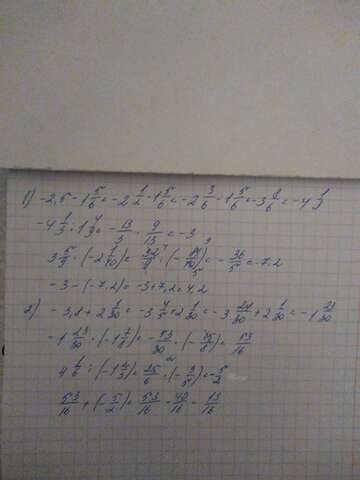 1) -2,5 - 1 5/6 = -2 1/2 - 1 5/6 = -2 3/6 - 1 5/6 = -3 8/6 = -4 1/3
-4 1/3 : 1 4/9 = -13/3 · 9/13 = -3
3 5/9 · (-2 1/10) = 32/9
-3 - (-7,2) = -3 + 7,2 = 4,2
2) -3,8 + 2 1/30 = -3 4/5 + 2 1/30 = -3 24/30 + 2 1/30 = -1 23/30
-1 23/30 : (-1 7/8) = -53/30
4 1/6 : (-1 2/3) = 25/6 · (-3/5) = -5/2
53/16 + (-5/2) = 53/16 - 40/16 = 13/16